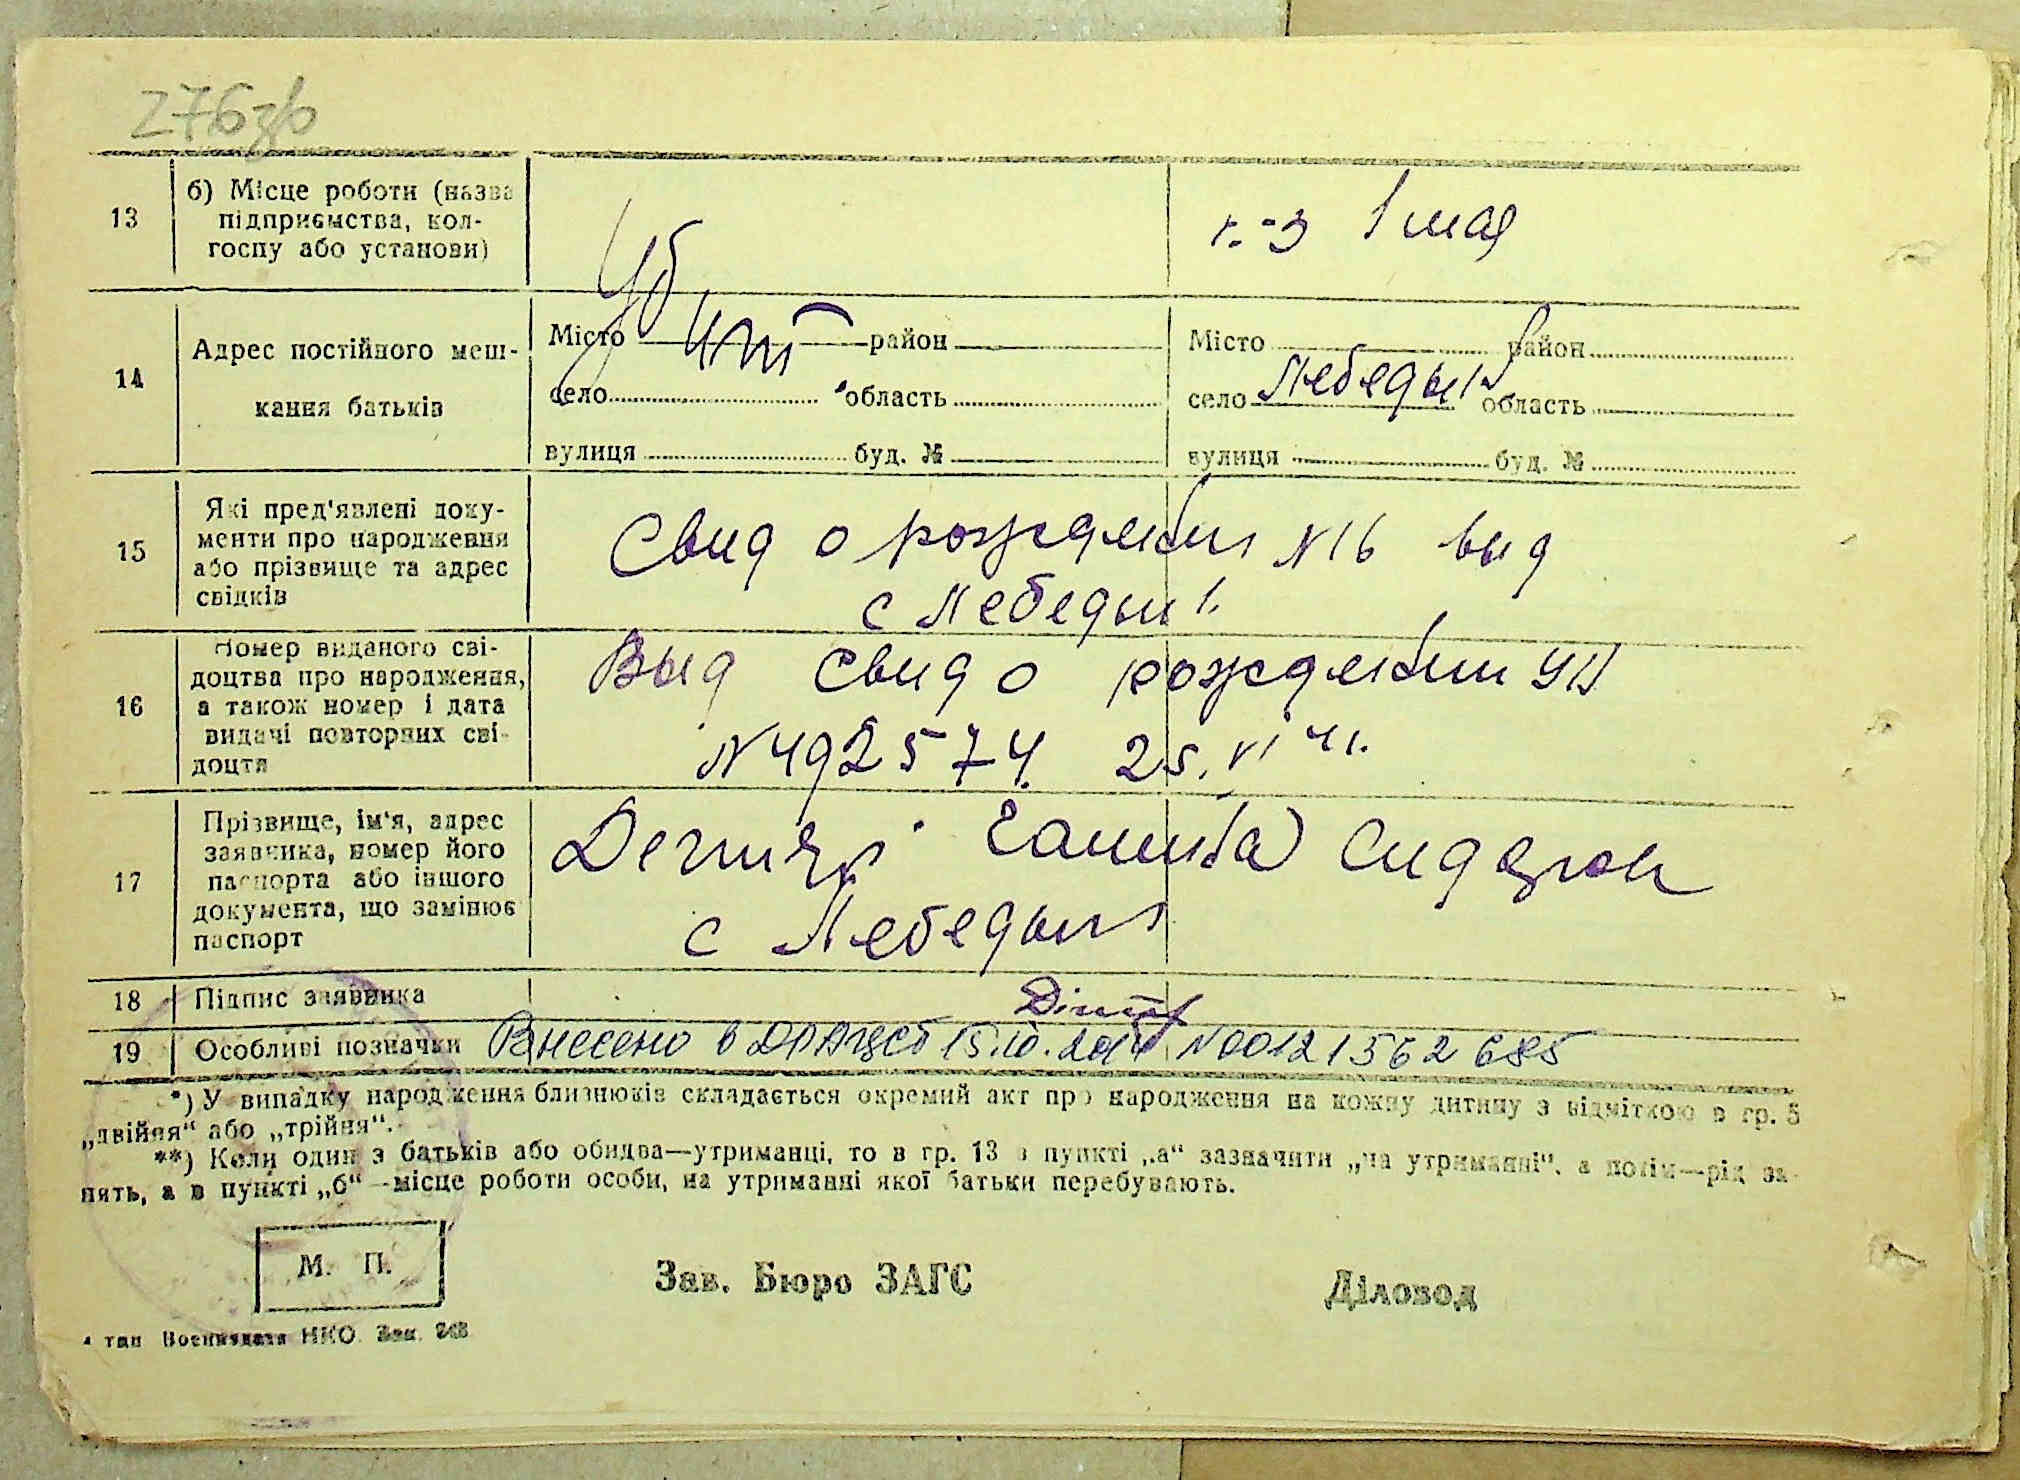 276зв
13
б) Місце роботи (назва
підприємства, кол-
госпу або установи)
к-з 1 мая
14
Адрес постійного меш-
кання батьків
Убит
Місто район
село область
вулиця буд. №
Місто район
село Лебедын область
вулиця буд. №
15
Які пред'явлені доку-
менти про народження
або прізвище та адрес
свідків
Свид о рождении N 16 выд
с Лебедын.
16
Номер виданого сві-
доцтва про народження,
а також номер і дата
видачі повторних сві-
доцтв
Выд свид о рождении
N 492574. 25. VI 41.
17
Прізвище, ім'я, адрес
заявника, номер його
паспорта або іншого
документа, що замінює
паспорт
с Лебедын
18
Підпис заявника
19
Особливі позначки
Внесено в ДРАЦСГ N 00121562685
*) У випадку народження близнюків складається окремий акт про народження на кожну дитину з відміткою в гр. 5
„двійня“ або „трійня“.
**) Коли один з батьків або обидва—утриманці, то в гр. 13 в пункті „а“ зазначити „на утриманні“, а потім—рід за-
нять, а в пункті „б“ -місце роботи особи, на утриманні якої батьки перебувають.
М. П.
Зав. Бюро ЗАГС
Діловод
тип Воениздата НКО. Зак.